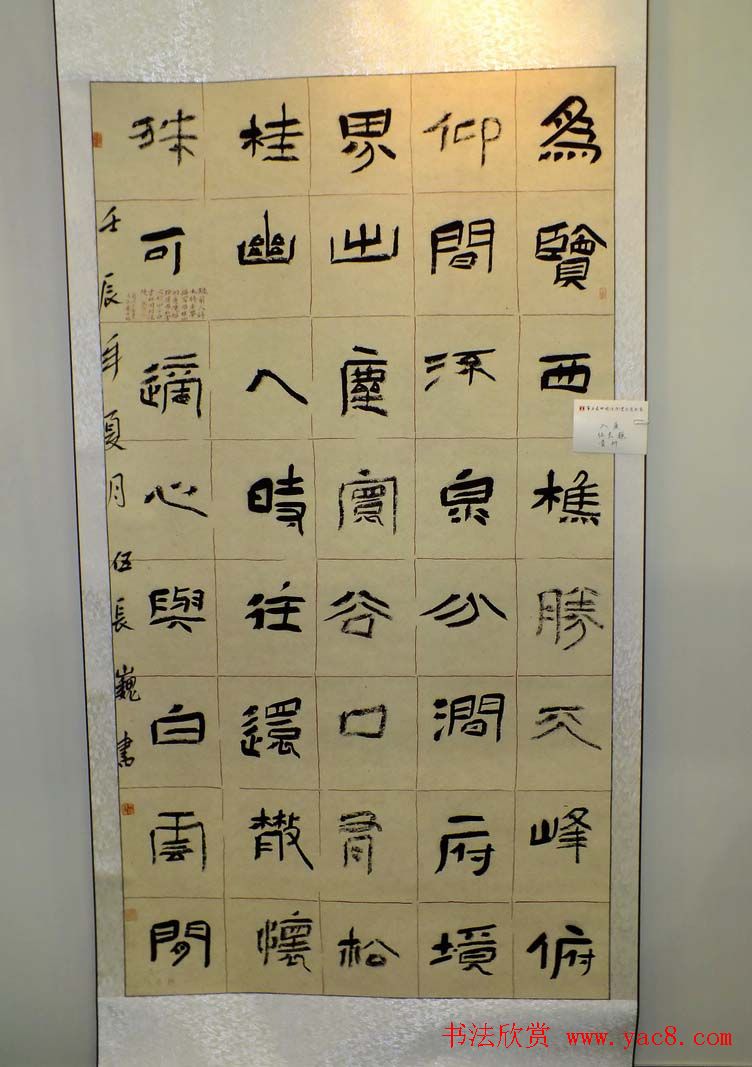 為覽西樵勝天峰俯
仰間流泉分澗府境
界出塵寰谷口肴松
桂幽人時往還散懷
殊可適心與白雲閒
壬辰年夏月伍長巍書
入展
貴州
书法欣赏 www.yac8.com